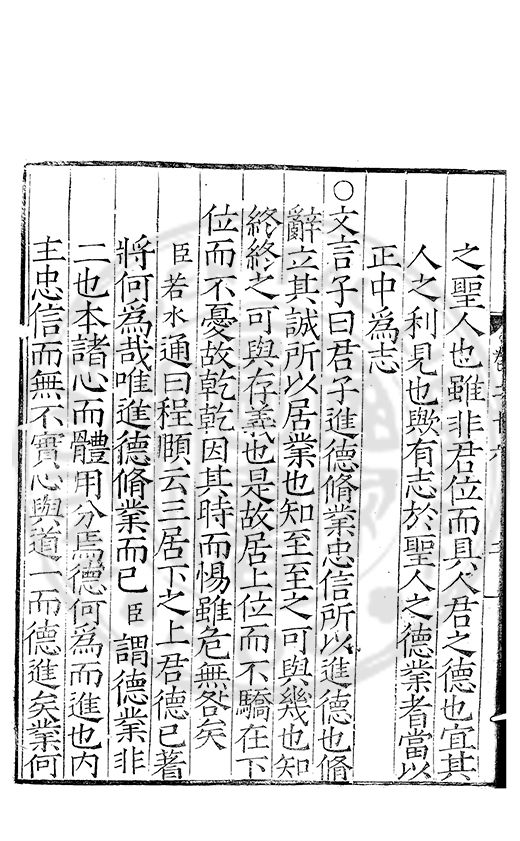 之聖人也雖非君位而具人君之德也宜其
人之利見也歟有志於聖人之德業者當以
正中為志
○文言子曰君子進德脩業忠信所以進德也脩
辭立其誠所以居業也知至至之可與幾也知
終終之可與存義也是故居上位而不驕在下
位而不憂故乾乾因其時而惕雖危無咎矣
臣若水通曰程頤云三居下之上君德已著
將何為哉唯進德脩業而已臣謂德業非
二也本諸心而體用分焉德何為而進也内
主忠信而無不實心與道一而德進矣業何